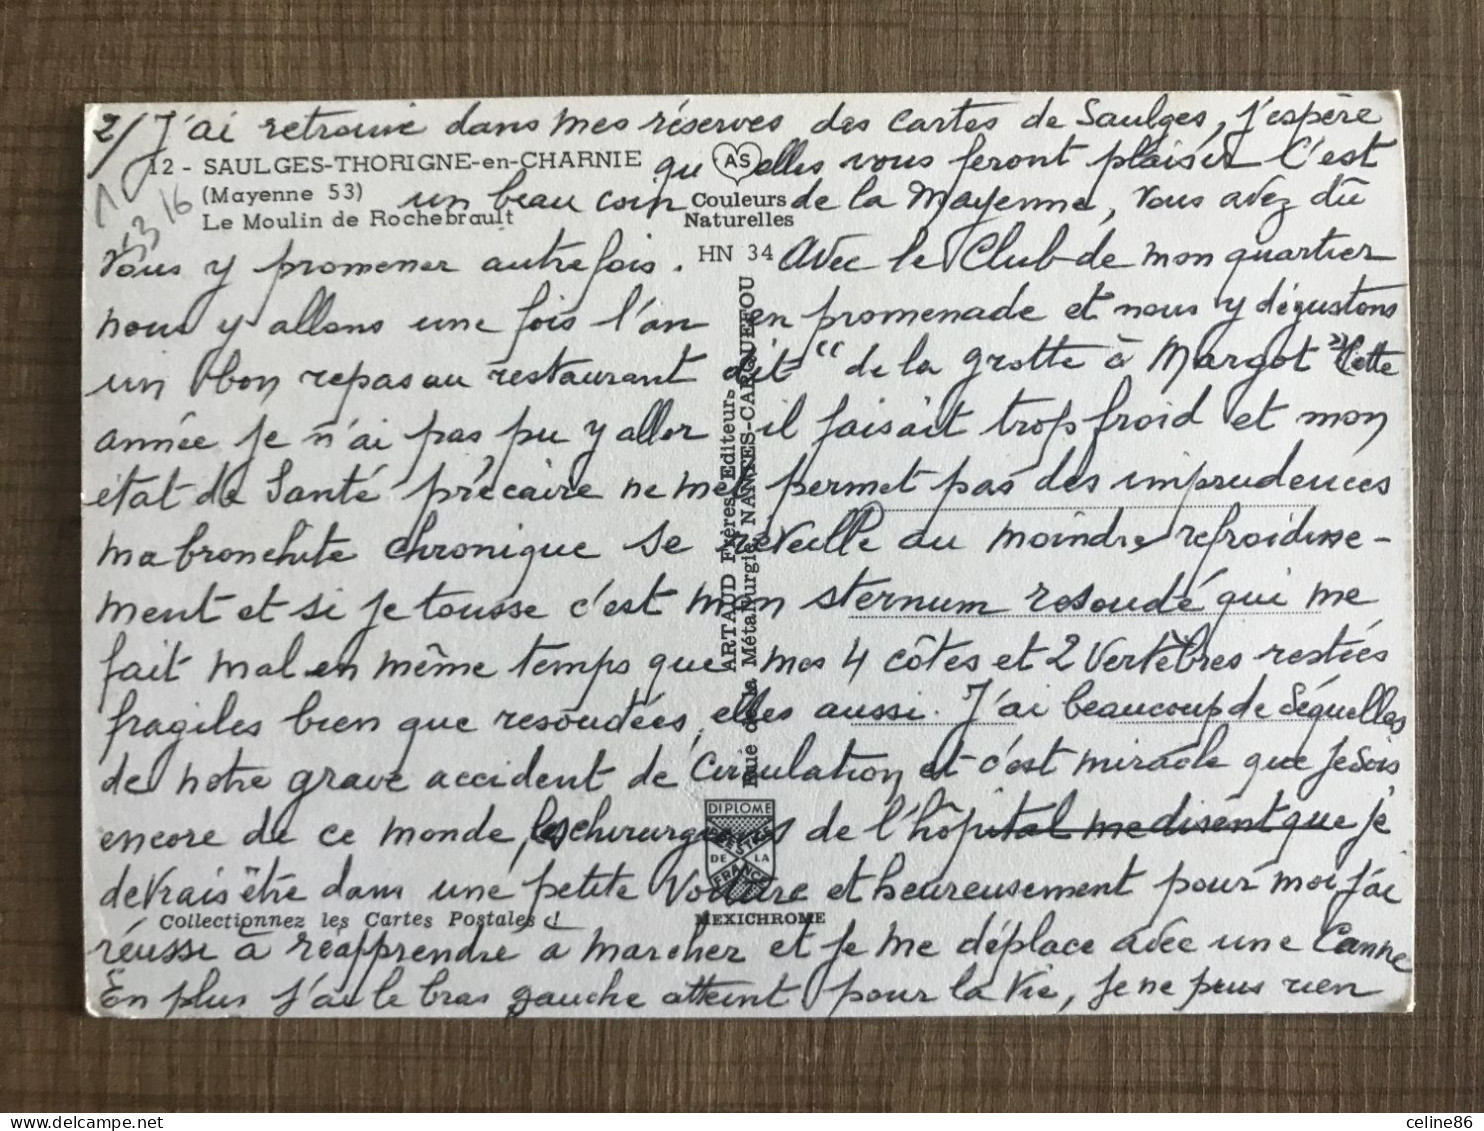 2/ J'ai retrouvé dans mes réserves des cartes de Saulges, j'espère
12 - SAULGES-THORIGNE-en-CHARNIE
qu'elles vous feront plaisir C'est
AS
(Mayenne 53)
un beau coin de la Mayenne, vous avez dû
Couleurs
Naturelles
Le Moulin de Rochebrault
16
53
HN 34
vous y promener autrefois. Avec le Club de mon quartier
nous y allons une fois l'an en promenade et nous y dégustons
un bon repas au restaurant dit "de la grotte à Margot" Cette
année je n'ai pas pu y aller il faisait trop froid et mon
état de Santé précaire ne me permet pas des imprudences
ma bronchite chronique se réveille au moindre refroidisse-
ment et si je tousse c'est mon sternum resoudé qui me
fait mal en même temps que mes 4 côtes et 2 vertèbres restées
fragiles bien que resoudées, elles aussi. J'ai beaucoup de séquelles
de notre grave accident de Circulation et c'est miracle que je sois
encore de ce monde, les chirurgiens de l'hôpital me disent que je
devrais être dans une petite Voiture et heureusement pour moi j'ai
réussi à réapprendre à marcher et je me déplace avec une Canne
En plus j'ai le bras gauche atteint pour la vie, je ne peux rien
ARTAUD Frères Editeurs
Rue de la Métallurgie NANTES-CARQUEFOU
DIPLOME
PRESTIGE
DE LA
FRANCE
Collectionnez les Cartes Postales !
MEXICHROME
delcampe.net
celine86